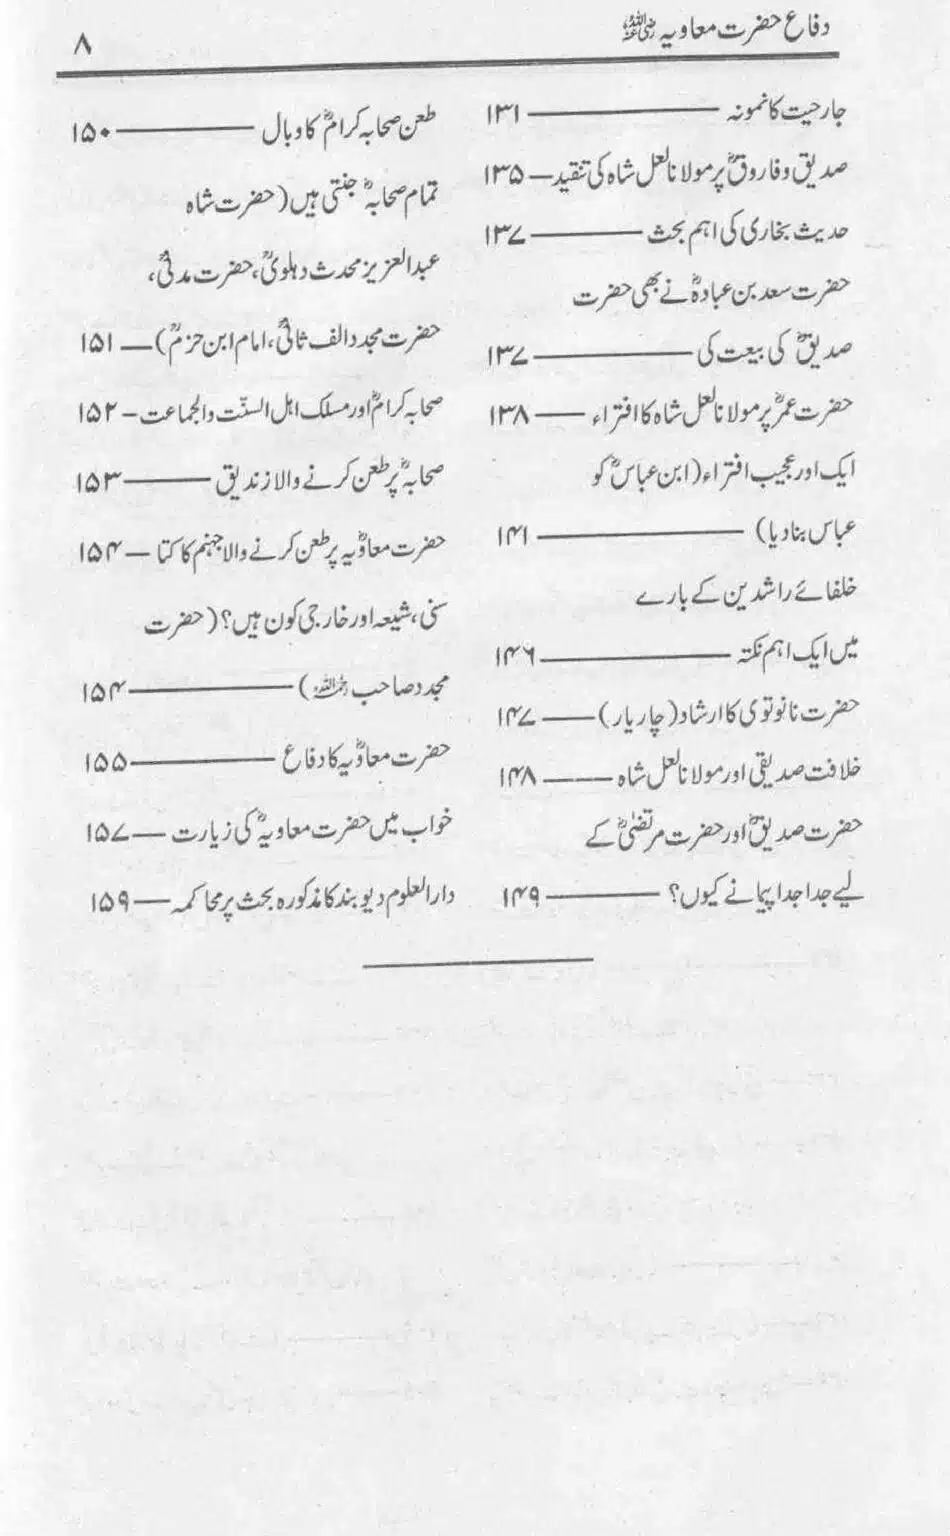 دفاع حضرت معاویہ رضی اللہ عنہ
۸
جارحیت کا نمونہ ۱۳۱
صدیقؓ و فاروقؓ پر مولانا لعل شاہ کی تنقید ۱۳۵
حدیث بخاری کی اہم بحث ۱۳۷
حضرت سعد بن عبادہؓ نے بھی حضرت
صدیقؓ کی بیعت کی ۱۳۷
حضرت عمرؓ پر مولانا لعل شاہ کا افتراء ۱۳۸
ایک اور عجیب افتراء (ابن عباسؓ کو
عباس بنا دیا) ۱۴۱
خلفائے راشدین کے بارے
میں ایک اہم نکتہ ۱۴۶
حضرت نانوتوی کا ارشاد (چار یار) ۱۴۷
خلافت صدیقی اور مولانا لعل شاہ ۱۴۸
حضرت صدیقؓ اور حضرت مرتضیٰؓ کے
لیے جدا جدا پیمانے کیوں؟ ۱۴۹
طعن صحابہ کرامؓ کا وبال ۱۵۰
تمام صحابہؓ جنتی ہیں (حضرت شاہ
عبدالعزیز محدث دہلویؒ، حضرت مدنیؒ،
حضرت مجدد الف ثانیؒ، امام ابن حزمؒ) ۱۵۱
صحابہ کرامؓ اور مسلک اہل السنّت والجماعت ۱۵۲
صحابہؓ پر طعن کرنے والا زندیق ۱۵۳
حضرت معاویہؓ پر طعن کرنے والا جہنم کا کتا ۱۵۴
سنی، شیعہ اور خارجی کون ہیں؟ (حضرت
مجدد صاحب رحمہ اللہ) ۱۵۴
حضرت معاویہؓ کا دفاع ۱۵۵
خواب میں حضرت معاویہؓ کی زیارت ۱۵۷
دارالعلوم دیوبند کا مذکورہ بحث پر محاکمہ ۱۵۹